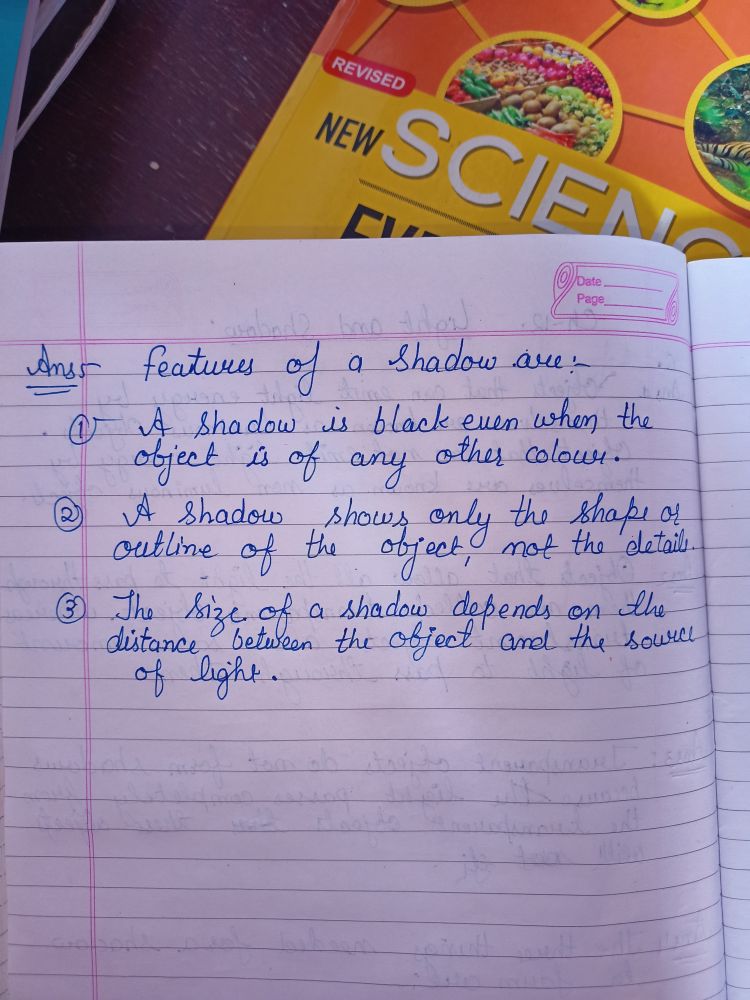 REVISED
NEW SCIENC
Date
Page
Ans5 features of a shadow are:-
① A shadow is black even when the
object is of any other colour.
② A shadow shows only the shape or
outline of the object, not the details.
③ The size of a shadow depends on the
distance between the object and the source
of light.